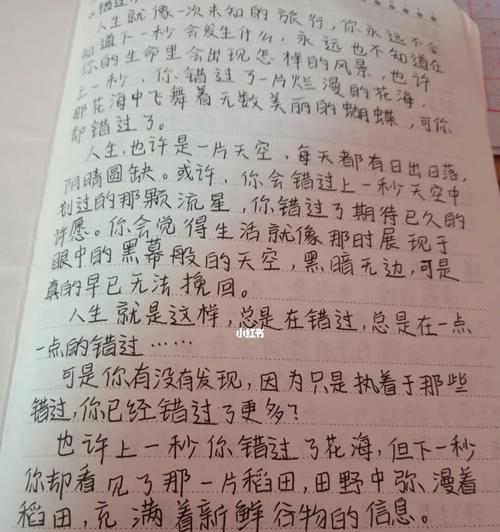 错过
人生就像一次未知的旅行，你永远不会
知道下一秒会发生什么，永远也不知道在
你的生命里会出现怎样的风景，也许
上一秒，你错过了一片烂漫的花海，
那花海中飞舞着无数美丽的蝴蝶，可你
却错过了。
人生，也许是一片天空，每天都有日出日落，
阴晴圆缺。或许，你会错过上一秒天空中
划过的那颗流星，你错过了期待已久的
许愿。你会觉得生活就像那时展现于
眼中的黑幕般的天空，黑暗无边，可是
真的早已无法挽回。
人生就是这样，总是在错过，总是在一点
一点的错过……
小红书
可是你有没有发现，因为只是执着于那些
错过，你已经错过了更多？
也许上一秒你错过了花海，但下一秒
你却看见了那一片稻田，田野中弥漫着
稻田，充满着新鲜谷物的信息。